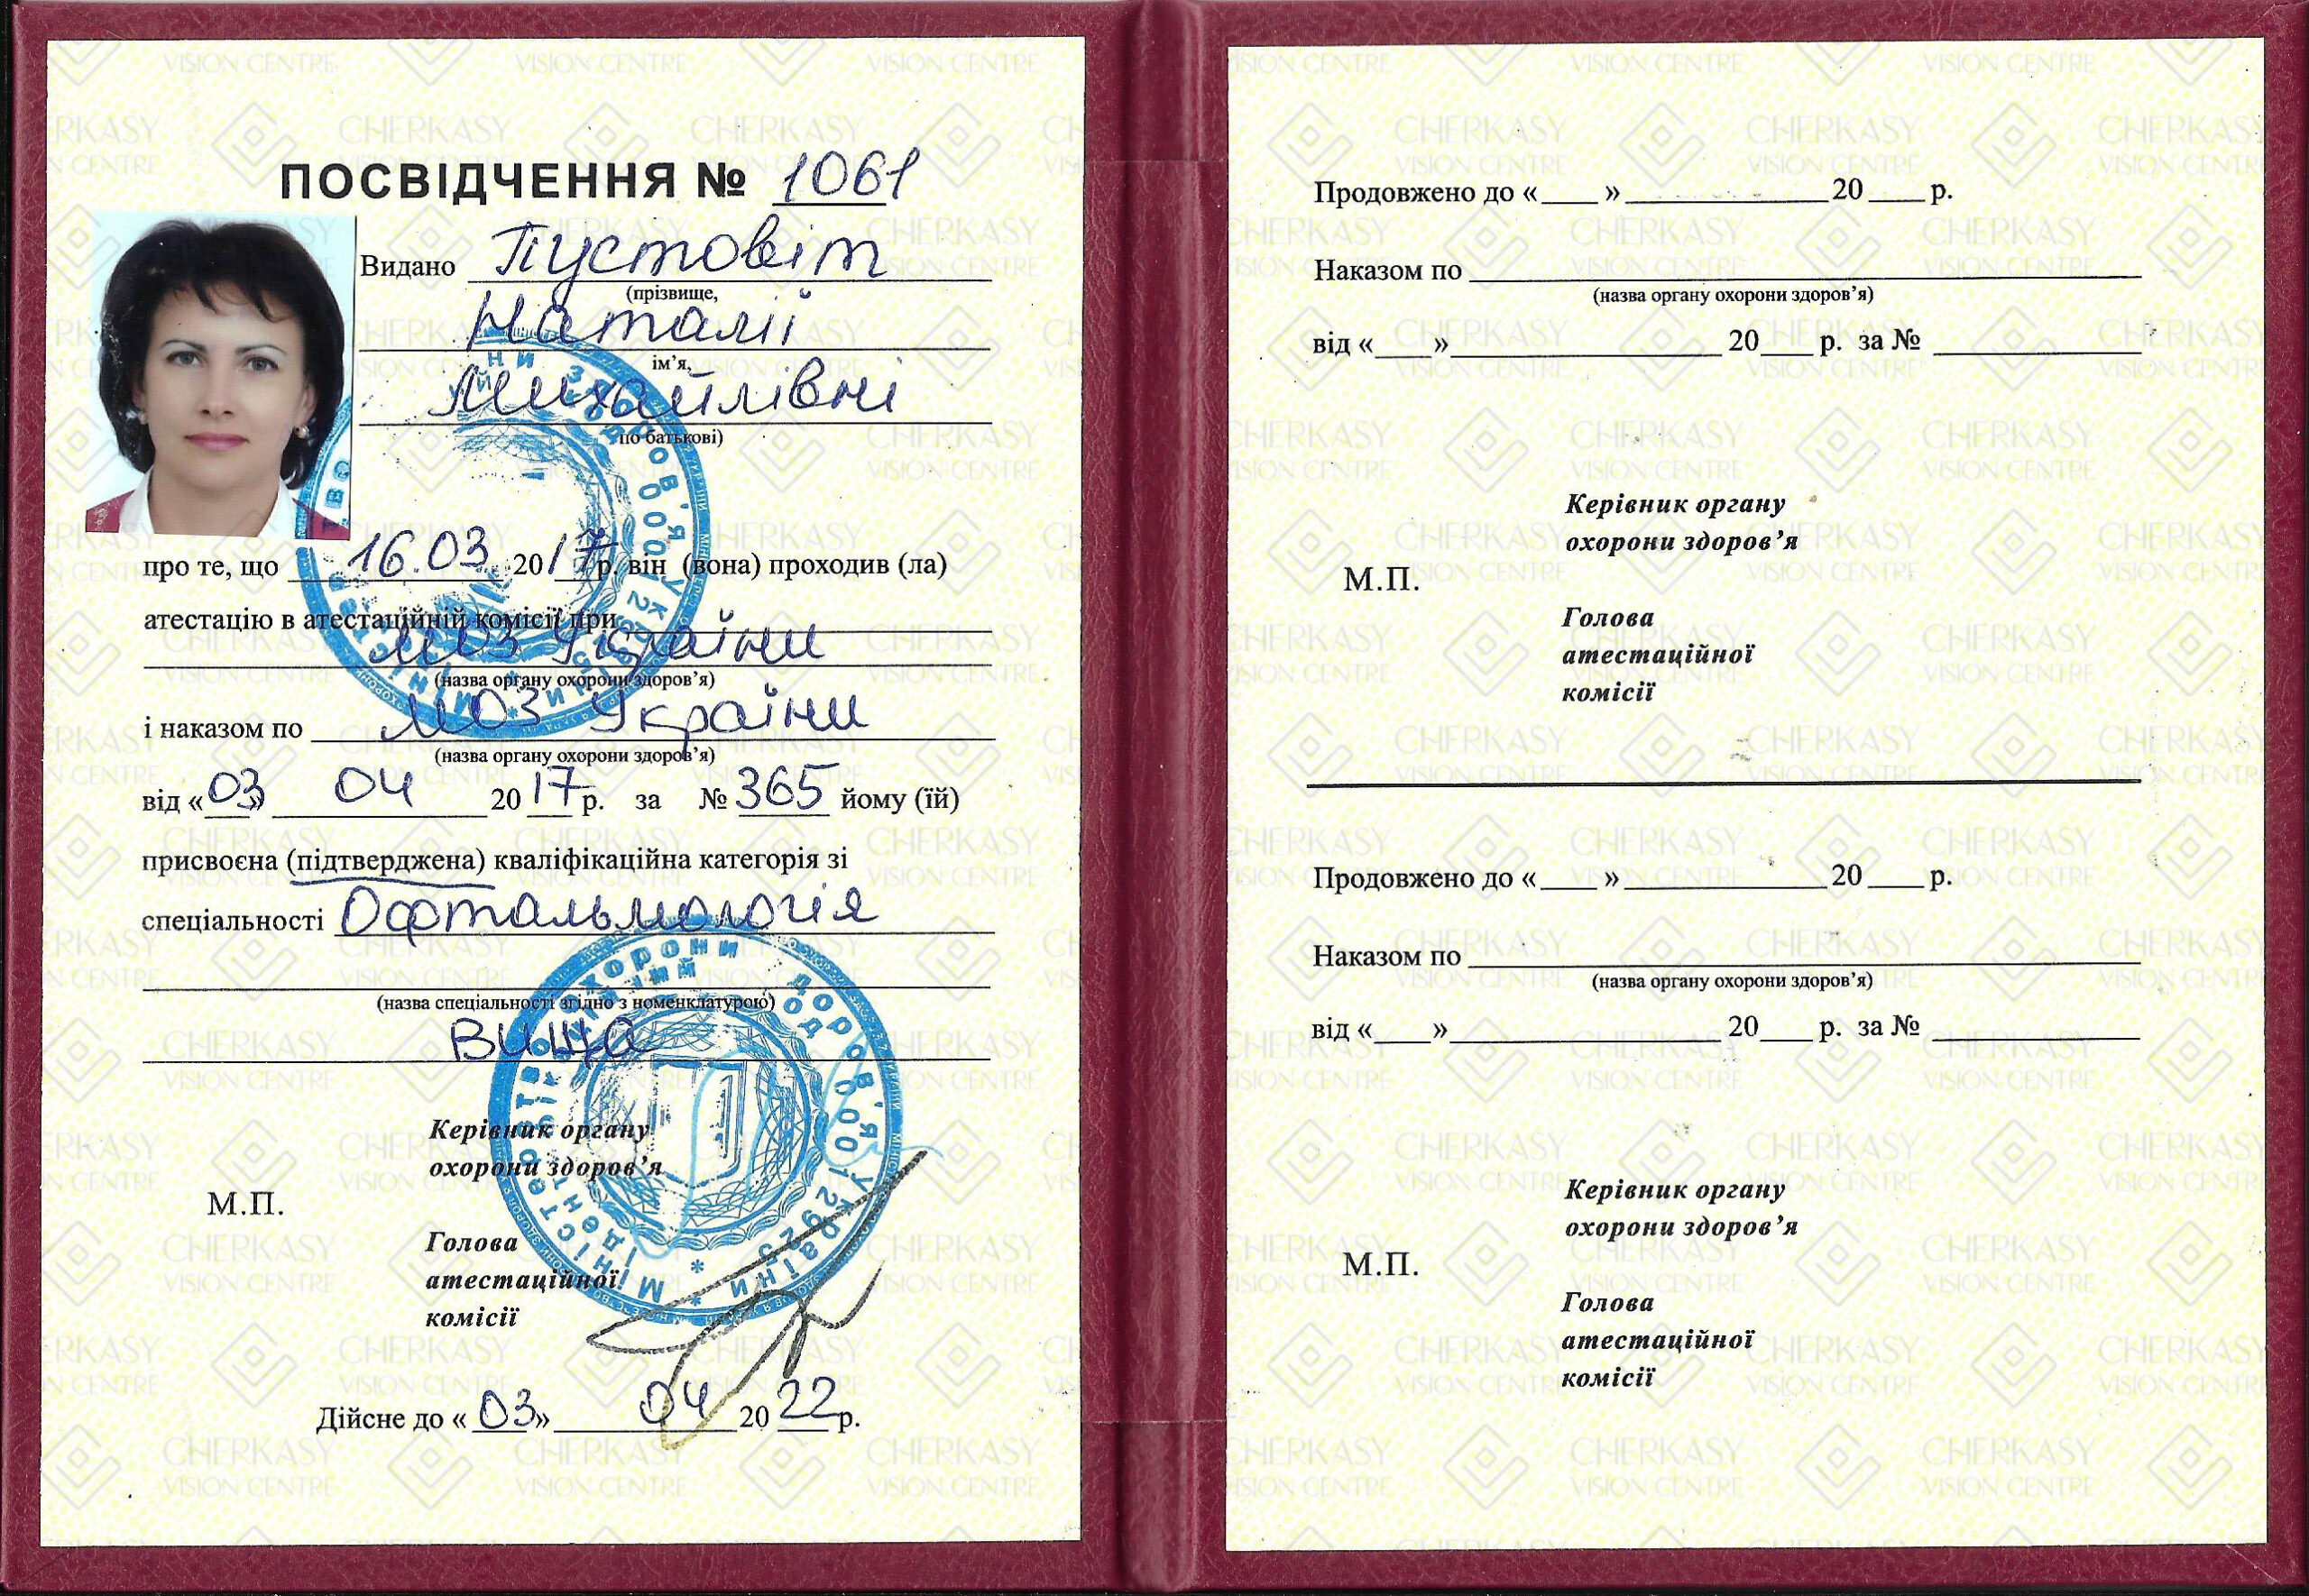 ПОСВІДЧЕННЯ № 1061
Видано Пустовіт
(прізвище,
Наталії
ім’я,
Михайлівні
по батькові)
про те, що 16.03 2017р. він (вона) проходив (ла)
атестацію в атестаційній комісії при
МОЗ України
(назва органу охорони здоров’я)
і наказом по МОЗ України
(назва органу охорони здоров’я)
від «03» 04 2017р. за № 365 йому (їй)
присвоєна (підтверджена) кваліфікаційна категорія зі
спеціальності Офтальмологія
(назва спеціальності згідно з номенклатурою)
Вища
Керівник органу
охорони здоров’я
М.П.
Голова
атестаційної
комісії
Дійсне до «03» 04 2022р.
Міністерство охорони здоров'я України
Продовжено до «   » 20   р.
Наказом по
(назва органу охорони здоров’я)
від «   » 20   р. за №
Керівник органу
охорони здоров’я
М.П.
Голова
атестаційної
комісії
Продовжено до «   » 20   р.
Наказом по
(назва органу охорони здоров’я)
від «   » 20   р. за №
Керівник органу
охорони здоров’я
М.П.
Голова
атестаційної
комісії
CHERKASY
VISION CENTRE